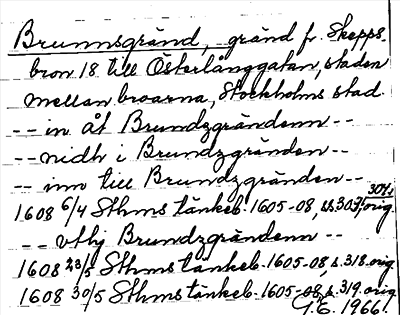 Brunnsgränd, gränd fr. Skepps-
bron 18 till Österlånggatan, staden
mellan broarna, Stockholms stad.
-- in åt Brundzgrändenn --
-- nidh i Brundzgränden --
-- inn till Brundzgränden --
1608 6/4 Sthms tänkeb. 1605-08, ss. 303, 304, orig.
-- vthj Brundzgrändenn --
1608 23/5 Sthms tänkeb. 1605-08, s. 318. orig
1608 30/5 Sthms tänkeb. 1605-08, s. 319. orig
G.E. 1966.